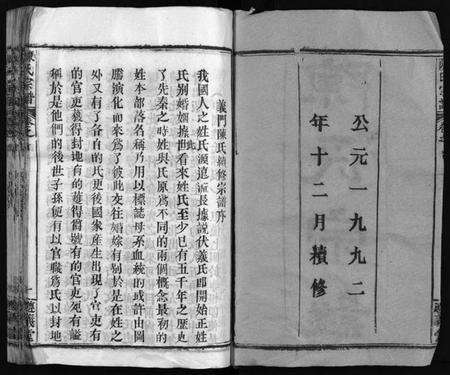 公元一九九二
年十二月續修
義門陳氏續修宗譜序
我國人之姓氏源遠流長據說伏羲氏即開始正姓
氏別婚姻據此看來姓氏至少已有五千年之歷史
了先秦之時姓與氏原爲不同的兩個概念最初的
姓本部落名稱乃用以標誌母系血統的或許由圖
騰演化而來爲了彼此交往婚嫁有別於是在姓之
外又有了各自的氏更後國家產生出現了官吏有
的官吏獲得封地有的獲得爵號有的官吏死有謚
稱於是他們的後世子孫便有以官職爲氏以封地
陳氏宗譜